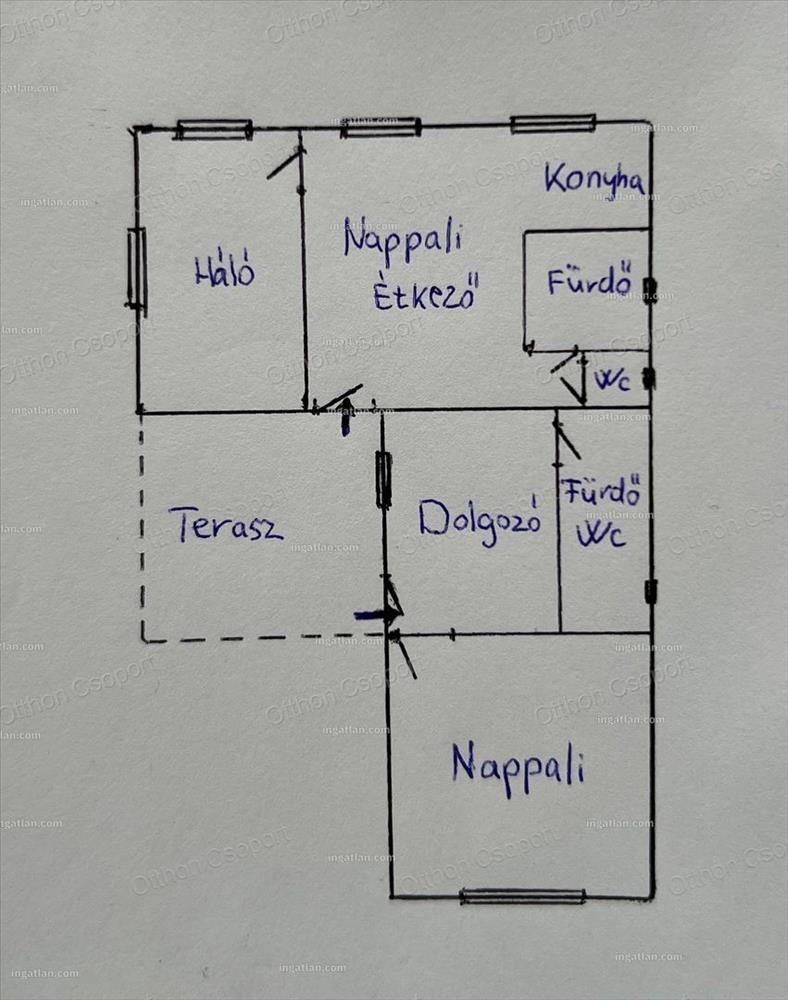 Konyha
Nappali
Étkező
Háló
Fürdő
Wc
Terasz
Dolgozó
Fürdő
Wc
Nappali
Otthon Csoport
ingatlan.com